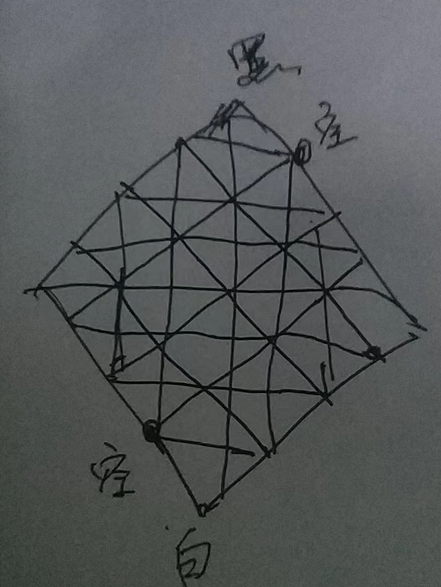 黑
空
空
白